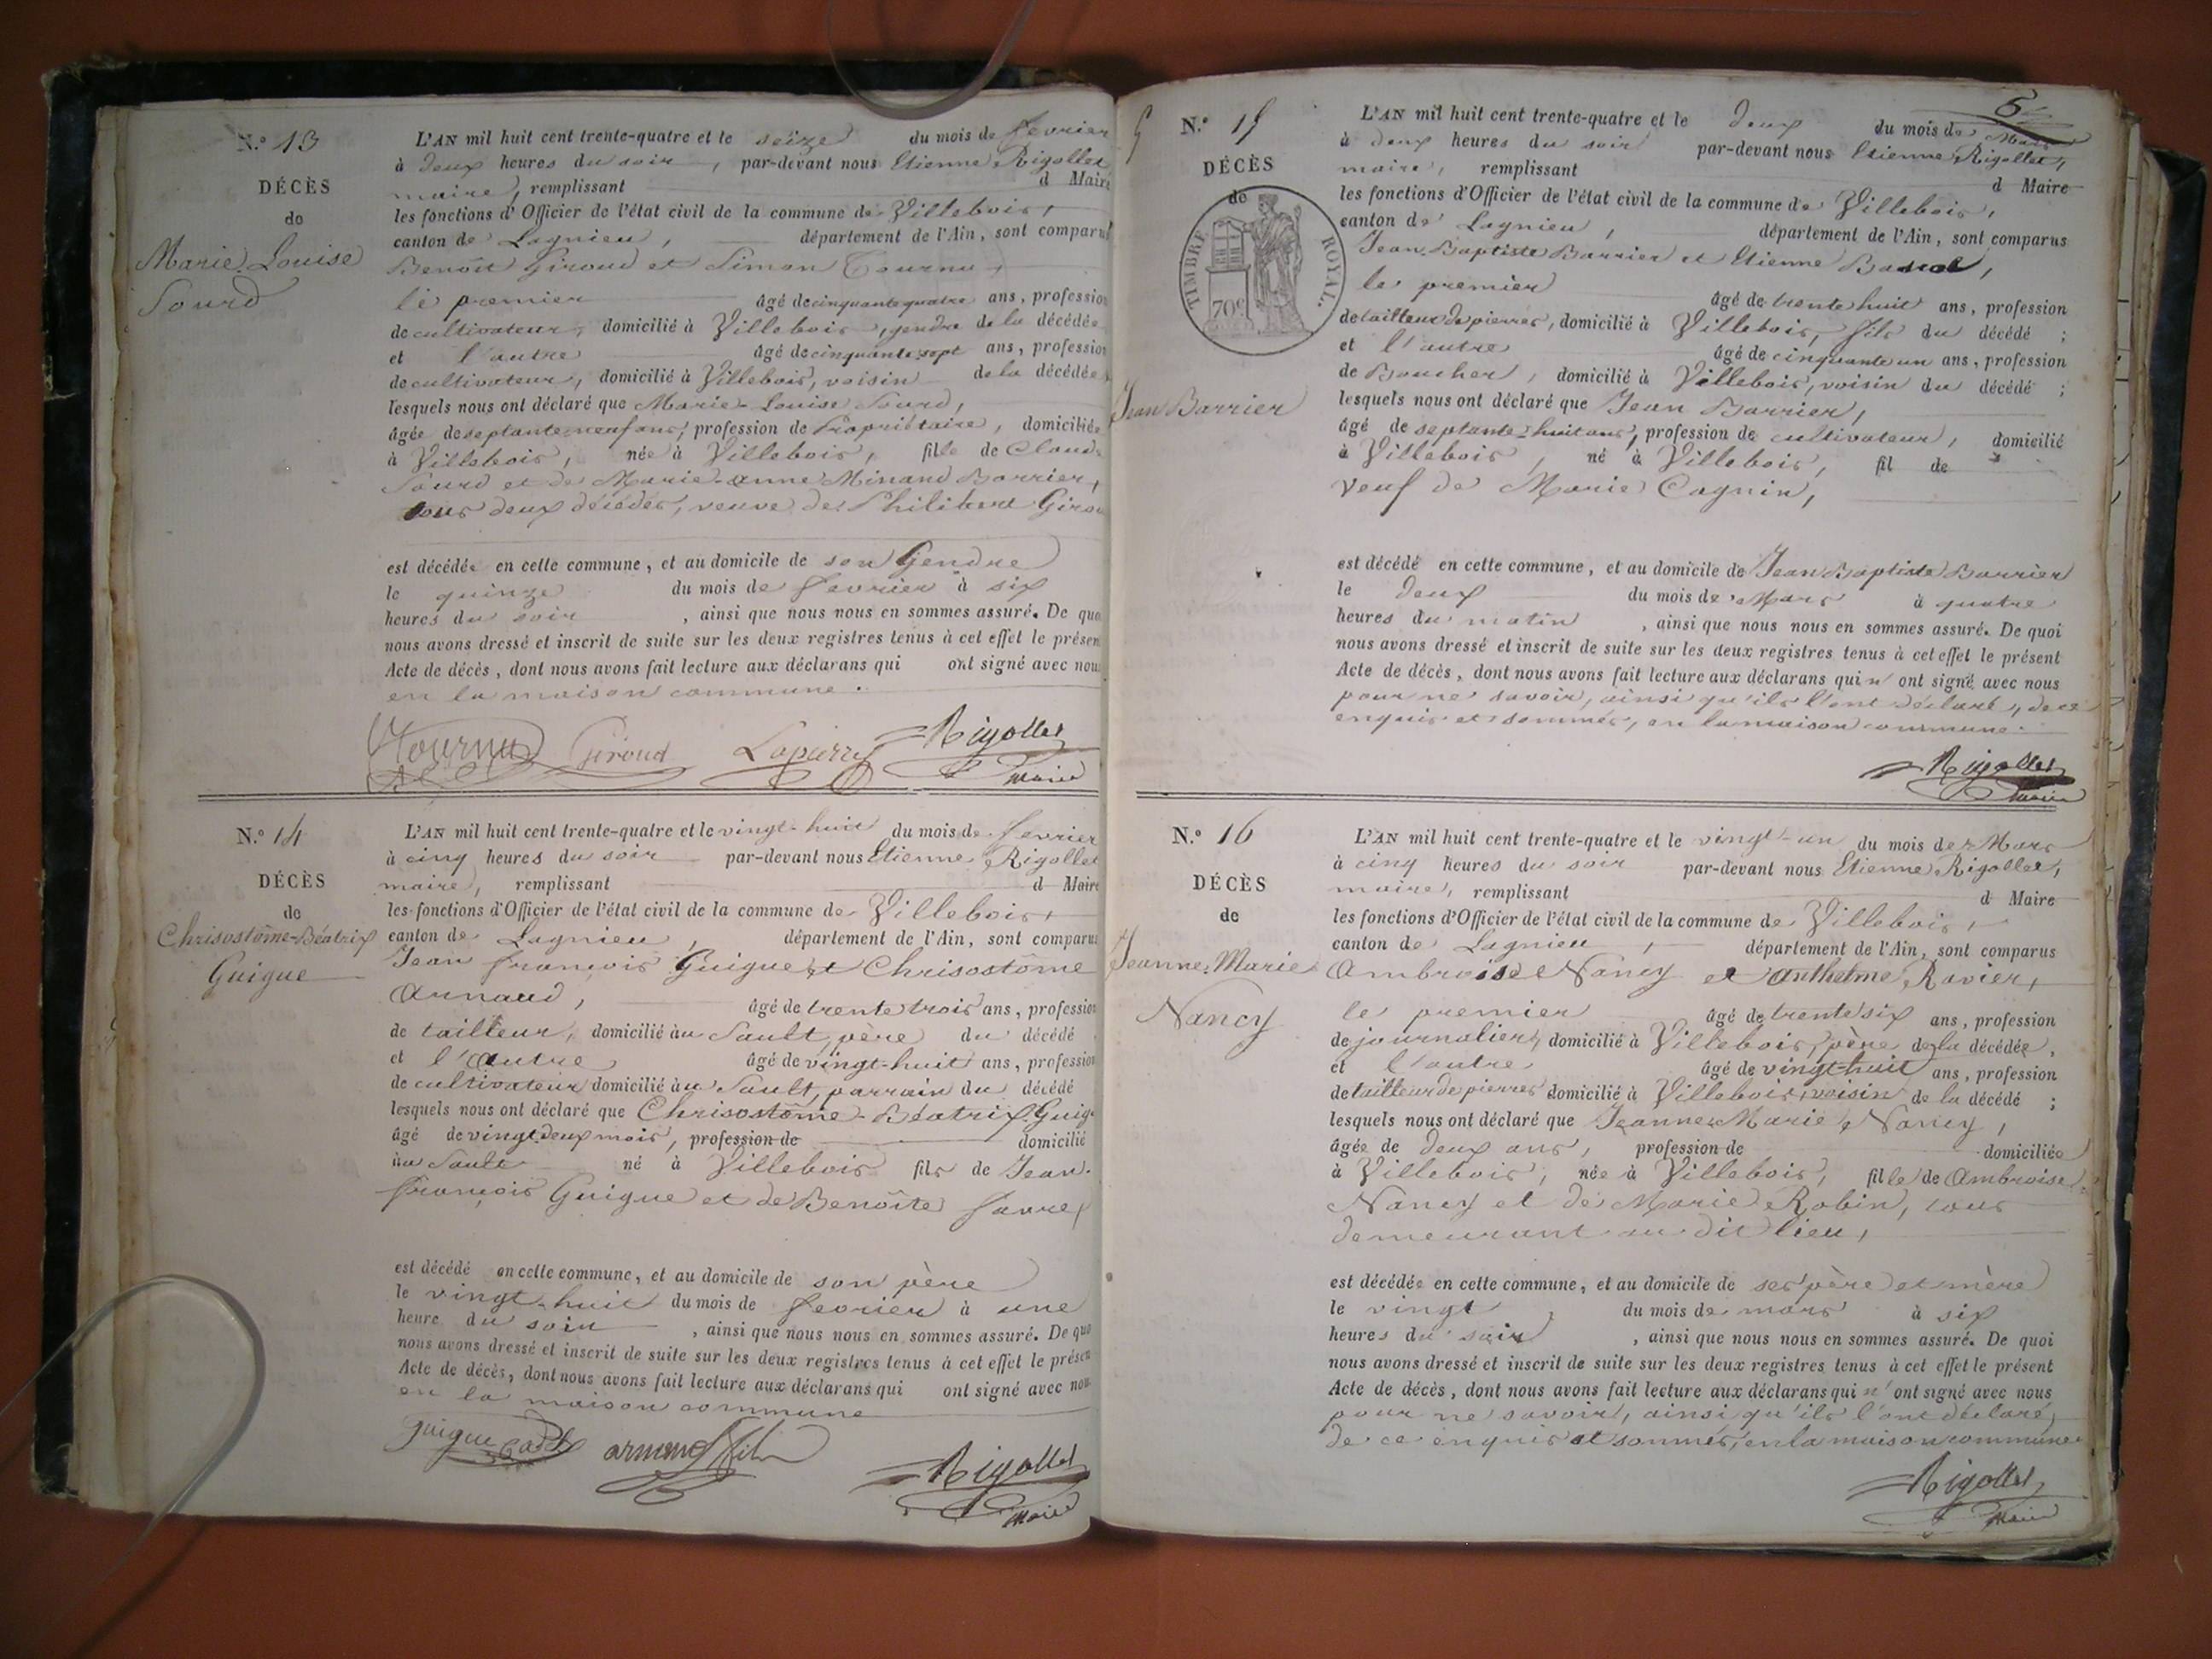 N.º 13
DÉCÈS
de
Marie Louise
Sourd
L'AN mil huit cent trente-quatre et le seize du mois de fevrier
à deux heures du soir, par-devant nous Etienne Rigollet
maire, remplissant d Maire
les fonctions d'Officier de l'état civil de la commune de Villebois,
canton de Lagnieu, département de l'Ain, sont comparus
Benoît Giroud et Simon Tournu,
le premier âgé de cinquante quatre ans, profession
de cultivateur, domicilié à Villebois, gendre de la décédée
et l'autre âgé de cinquante sept ans, profession
de cultivateur, domicilié à Villebois, voisin de la décédée
lesquels nous ont déclaré que Marie-Louise Sourd,
âgée de septante neuf ans, profession de Propriétaire, domiciliée
à Villebois, née à Villebois, fille de Claude
Sourd et de Marie-anne Minand Barrier,
tous deux décédés, veuve de Philibert Girou
est décédée en cette commune, et au domicile de son Gendre
le quinze du mois de fevrier à six
heures du soir, ainsi que nous nous en sommes assuré. De quo
nous avons dressé et inscrit de suite sur les deux registres tenus à cet effet le présen
Acte de décès, dont nous avons fait lecture aux déclarans qui ont signé avec nou
en la maison commune.
Tournu Giroud Rigollet
Maire
N.º 14
DÉCÈS
de
Chrisostôme-Béatrix
Guigue
L'AN mil huit cent trente-quatre et le vingt-huit du mois de fevrier
à cinq heures du soir par-devant nous Etienne Rigollet
maire, remplissant d Maire
les fonctions d'Officier de l'état civil de la commune de Villebois,
canton de Lagnieu, département de l'Ain, sont comparus
Jean françois Guigue et Chrisostôme
Arnaud, âgé de trente trois ans, profession
de tailleur, domicilié au Sault, père du décédé
et l'autre âgé de vingt-huit ans, profession
de cultivateur domicilié au Sault, parrain du décédé
lesquels nous ont déclaré que Chrisostôme-Béatrix Guig
âgé de vingt deux mois, profession de domicilié
au Sault né à Villebois fils de Jean-
françois Guigue et de Benoîte favre,
est décédé en cette commune, et au domicile de son père
le vingt-huit du mois de fevrier à une
heure du soir, ainsi que nous nous en sommes assuré. De quo
nous avons dressé et inscrit de suite sur les deux registres tenus à cet effet le présen
Acte de décès, dont nous avons fait lecture aux déclarans qui ont signé avec nou
en la maison commune
guigue Rigollet
Maire
5
N.º 15
DÉCÈS
de
TIMBRE ROYAL.
70c
Jean Barrier
L'AN mil huit cent trente-quatre et le deux du mois de Mars
à deux heures du soir par-devant nous Etienne Rigollet,
maire, remplissant d Maire
les fonctions d'Officier de l'état civil de la commune de Villebois,
canton de Lagnieu, département de l'Ain, sont comparus
Jean Baptiste Barrier et Etienne
le premier âgé de trente huit ans, profession
de tailleur de pierres, domicilié à Villebois, fils du décédé ;
et l'autre âgé de cinquante un ans, profession
de Boucher, domicilié à Villebois, voisin du décédé ;
lesquels nous ont déclaré que Jean Barrier,
âgé de septante-huit ans, profession de cultivateur, domicilié
à Villebois, né à Villebois, fil de
veuf de Marie Cagnin,
est décédé en cette commune, et au domicile de Jean Baptiste Barrier
le deux du mois de Mars à quatre
heures du matin, ainsi que nous nous en sommes assuré. De quoi
nous avons dressé et inscrit de suite sur les deux registres tenus à cet effet le présent
Acte de décès, dont nous avons fait lecture aux déclarans qui n'ont signé avec nous
pour ne savoir, ainsi qu'ils l'ont déclaré, de ce
enquis et sommés, en la maison commune.
Rigollet
Maire
N.º 16
DÉCÈS
de
Jeanne-Marie
Nancy
L'AN mil huit cent trente-quatre et le vingt-un du mois de Mars
à cinq heures du soir par-devant nous Etienne Rigollet,
maire, remplissant d Maire
les fonctions d'Officier de l'état civil de la commune de Villebois,
canton de Lagnieu, département de l'Ain, sont comparus
Ambroise Nancy et Anthelme Ravier,
le premier âgé de trente six ans, profession
de journalier, domicilié à Villebois, père de la décédée,
et l'autre âgé de vingt-huit ans, profession
de tailleur de pierres domicilié à Villebois, voisin de la décédé ;
lesquels nous ont déclaré que Jeanne Marie Nancy,
âgée de deux ans, profession de domiciliée
à Villebois, née à Villebois, fille de Ambroise
Nancy et de Marie Robin, tous
demeurant au dit lieu,
est décédée en cette commune, et au domicile de ses père et mère
le vingt du mois de mars à six
heures du soir, ainsi que nous nous en sommes assuré. De quoi
nous avons dressé et inscrit de suite sur les deux registres tenus à cet effet le présent
Acte de décès, dont nous avons fait lecture aux déclarans qui n'ont signé avec nous
pour ne savoir, ainsi qu'ils l'ont déclaré,
de ce enquis et sommés, en la maison commune
Rigollet
Maire